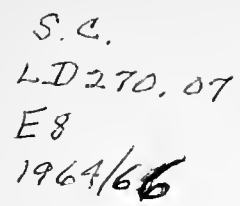 S.C.
LD270.07
E8
1964/66